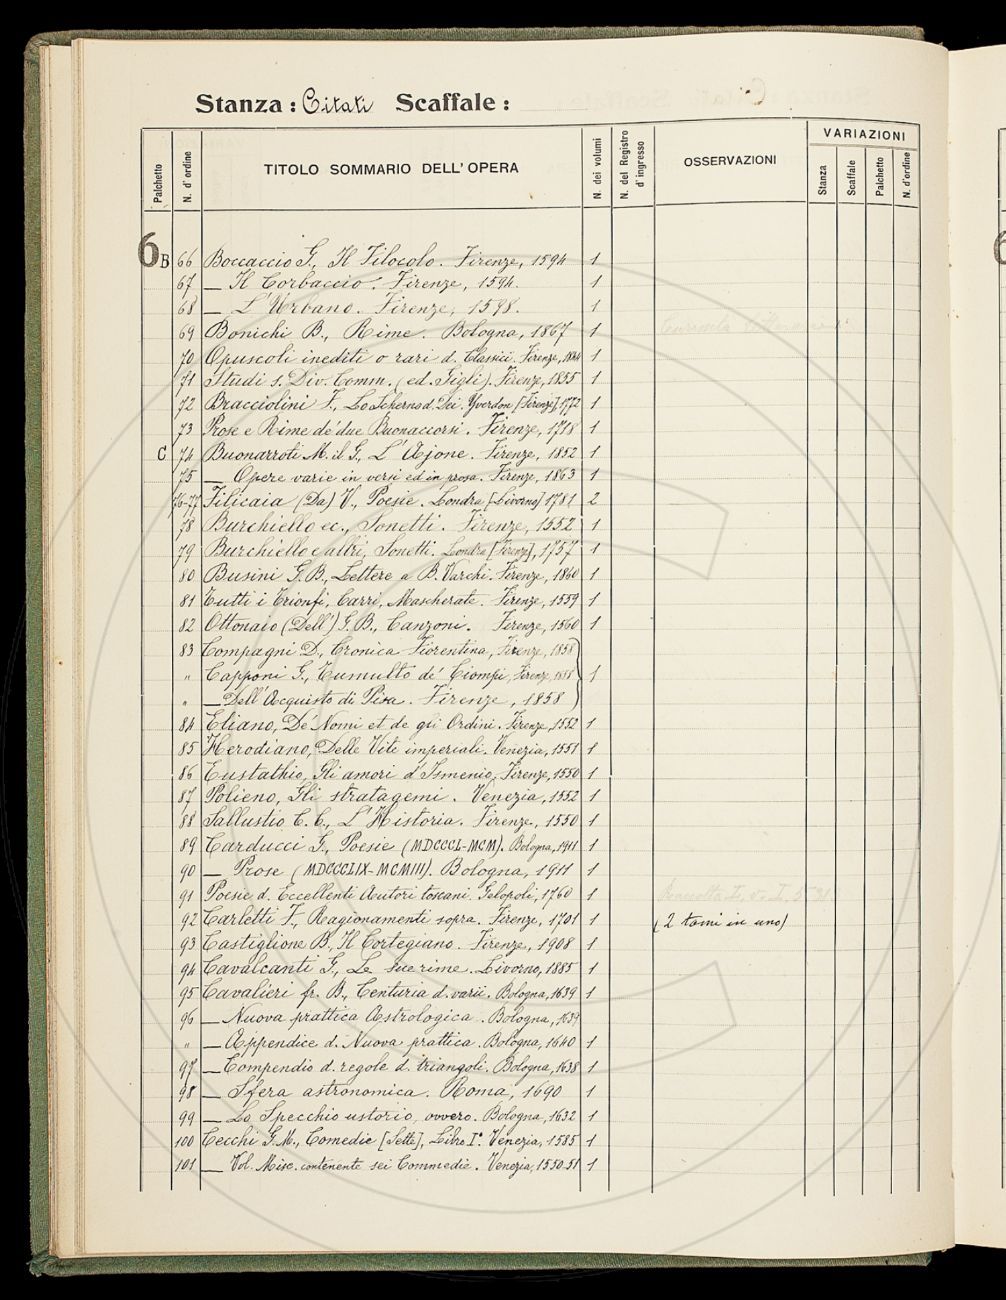 Stanza: Citati Scaffale:
Palchetto N. d'ordine TITOLO SOMMARIO DELL'OPERA N. dei volumi N. del Registro d'ingresso OSSERVAZIONI VARIAZIONI
Stanza Scaffale Palchetto N. d'ordine
6 B 66 Boccaccio G., Il Filocolo. Firenze, 1594 1
67 — Il Corbaccio. Firenze, 1594. 1
68 — L'Urbano. Firenze, 1598. 1
69 Bonichi B., Rime. Bologna, 1867 1
70 Opuscoli inediti o rari d. Classici. Firenze, 1844 1
71 Studi s. Div. Comm. (ed. Gigli). Firenze, 1855 1
72 Bracciolini F., Lo Scherno d. Dei. Yverdon [Firenze], 1772 1
73 Prose e Rime de' due Buonaccorsi. Firenze, 1718 1
C 74 Buonarroti M. il G., L'Ajone. Firenze, 1852 1
75 — Opere varie in versi ed in prosa. Firenze, 1863 1
76-77 Filicaia (Da) V., Poesie. Londra [Livorno] 1781 2
78 Burchiello ec., Sonetti. Firenze, 1552 1
79 Burchiello e altri, Sonetti. Londra [Firenze], 1757 1
80 Busini G. B., Lettere a B. Varchi. Firenze, 1860 1
81 Tutti i Trionfi, Carri, Mascherate. Firenze, 1559 1
82 Ottonaio (Dell') G. B., Canzoni. Firenze, 1560 1
83 Compagni D., Cronica Fiorentina, Firenze, 1858
" Capponi G., Tumulto de' Ciompi, Firenze, 1858 1
" — Dell'Acquisto di Pisa. Firenze, 1858
84 Eliano, De' Nomi et de gli Ordini. Firenze, 1552 1
85 Herodiano, Delle Vite imperiali. Venezia, 1551 1
86 Eustathio, Gli amori d'Ismenio, Firenze, 1550 1
87 Polieno, Gli stratagemi. Venezia, 1552 1
88 Sallustio C. C., L'Historia. Firenze, 1550 1
89 Carducci G., Poesie (MDCCCL-MCM). Bologna, 1911 1
90 — Prose (MDCCCLIX-MCMIII). Bologna, 1911 1
91 Poesie d. Eccellenti Autori toscani. Gelopoli, 1760 1
92 Carletti F., Ragionamenti sopra. Firenze, 1701 1 (2 tomi in uno)
93 Castiglione B., Il Cortegiano. Firenze, 1908 1
94 Cavalcanti G., Le sue rime. Livorno, 1885 1
95 Cavalieri fr. B., Centuria d. varii. Bologna, 1639 1
96 — Nuova prattica Astrologica. Bologna, 1639
" — Appendice d. Nuova prattica. Bologna, 1640 1
97 — Compendio d. regole d. triangoli. Bologna, 1638 1
98 — Sfera astronomica. Roma, 1690 1
99 — Lo Specchio ustorio, ovvero. Bologna, 1632 1
100 Cecchi G. M., Comedie [Sette], Libro I°. Venezia, 1585 1
101 — Vol. Misc. contenente sei Commedie. Venezia, 1550-51 1